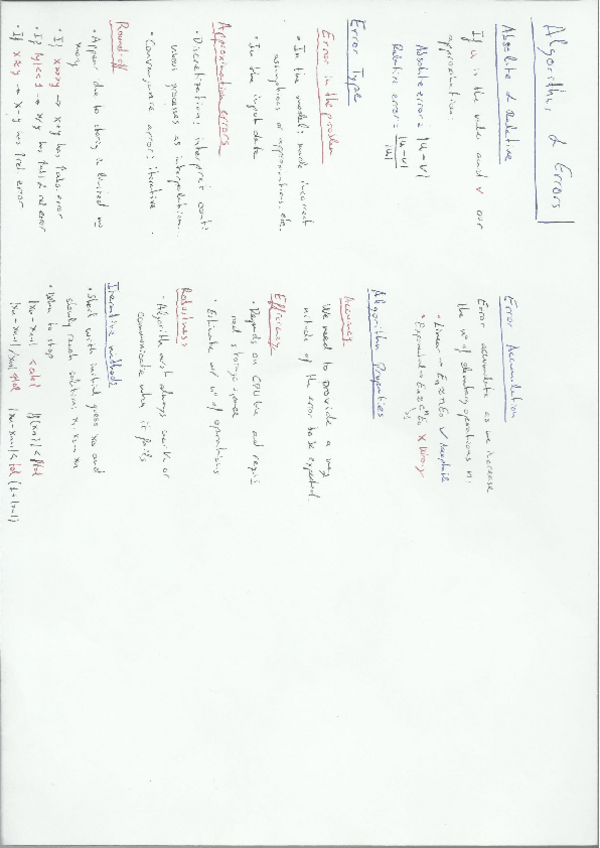 Algorithms & Errors
Absolute & Relative
If u is the value and v our
approximation:
Absolute error = |u-v|
Relative error = |u-v| / |u|
Error Type
Error in the problem
• In the model: made incorrect
assumptions or approximations, etc.
• In the input data
Approximation errors
• Discretization: interpret conti
nuous processes as interpolation..
• Convergence error: iterative.
Round-off
• Appear due to storing in limited
way
• If x>>y → x+y has abs. error
• If |y|<<1 → x/y has abs & rel error
• If x≈y → x-y has rel error
Error Accumulation
Error accumulate as we increase
the nº of elementary operations n:
• Linear → En ≈ n E0 ✓ Acceptable
• Exponential → En ≈ cⁿ E0 X Wrong
Algorithm Properties
Accuracy
We need to provide a mag
nitude of the error to be expected.
Efficiency
• Depends on CPU use and requi
red storage space
• Estimate w/ nº of operations
Robustness
• Algorithm must always work or
communicate when it fails
Iterative methods
• Start with initial guess x0 and
slowly reach solution: x1, x2 ... xn
• When to stop
|xn-xn-1| < atol |f(xn)| < ftol
|xn-xn-1|/|xn| < rtol |xn-xn-1| < tol (1+|xn|)